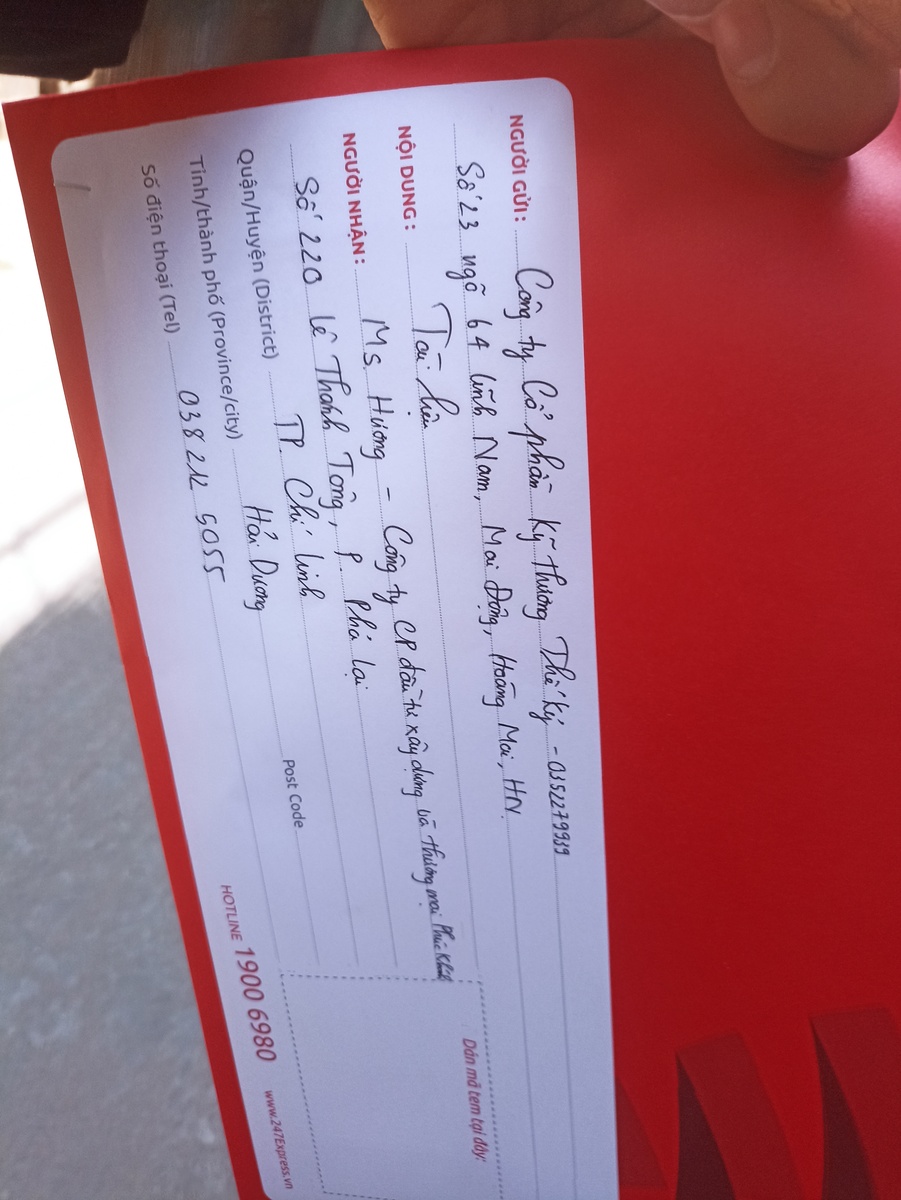 NGƯỜI GỬI: Công ty Cổ phần Kỹ thương Thế Kỷ - 0352279939
Số 23 ngõ 64 Lĩnh Nam, Mai Động, Hoàng Mai, HN.
NỘI DUNG: Tài liệu
NGƯỜI NHẬN: Ms. Hương - Công ty CP đầu tư xây dựng và thương mại Phúc Khánh
Số 220 Lê Thánh Tông, P. Phả Lại
Quận/Huyện (District) TP. Chí Linh
Tỉnh/thành phố (Province/city) Hải Dương Post Code
Số điện thoại (Tel) 038 212 5055
Dán mã tem tại đây:
HOTLINE 1900 6980 www.247Express.vn